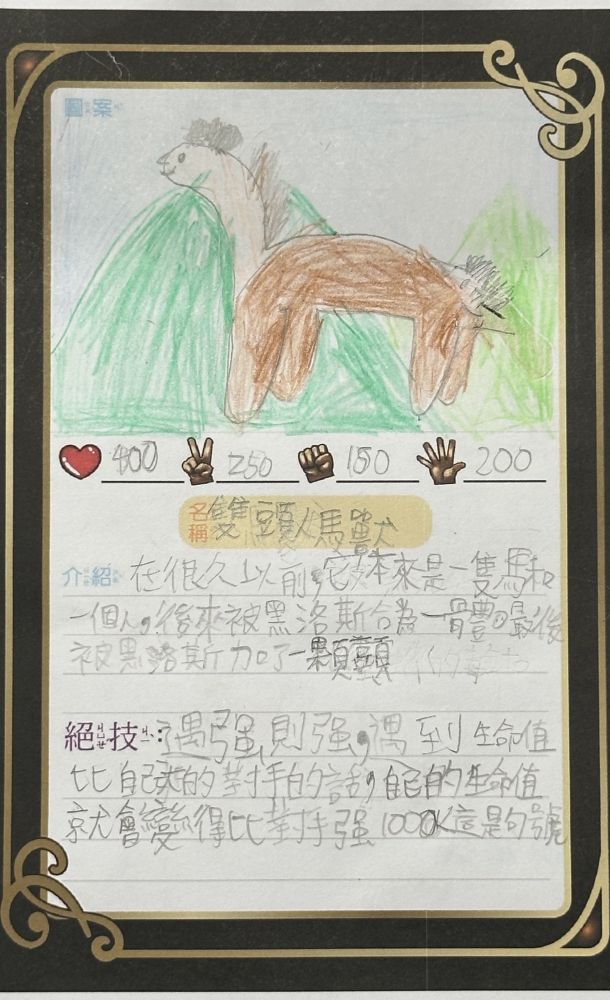 圖案
400 250 150 200
名稱 雙頭人馬獸
介紹 在很久以前,它本來是一隻馬和
一個人,後來被黑洛斯合為一骨體,最後
被黑洛斯加了一顆頭
絕技:遇强則强,遇到生命值
比自己的對手的話,自己的生命值
就會變得比對手强1000K這是句號